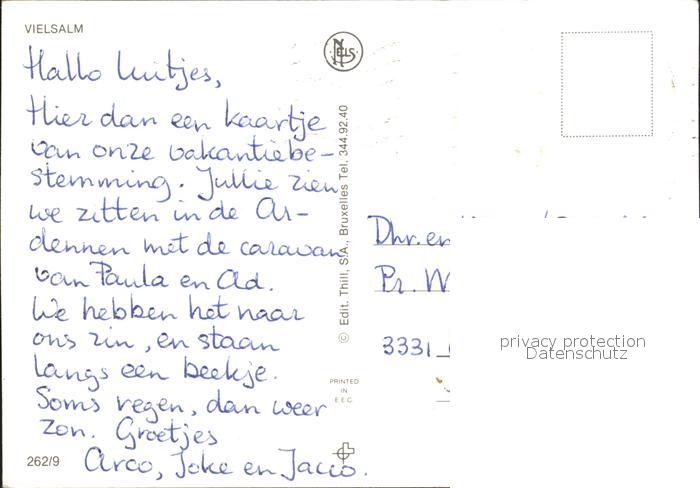 VIELSALM
Hallo luitjes,
Hier dan een kaartje
van onze vakantiebe-
stemming. Jullie zien
we zitten in de Ar-
dennen met de caravan
van Paula en Ad.
We hebben het naar
ons zin, en staan
langs een beekje.
Soms regen, dan weer
zon. Groetjes
Arco, Joke en Jacco.
262/9
NELS
© Edit. Thill, S.A., Bruxelles Tel. 344.92.40
PRINTED
IN
E.E.C.
Dhr. en
Pr. W
3331
privacy protection
Datenschutz